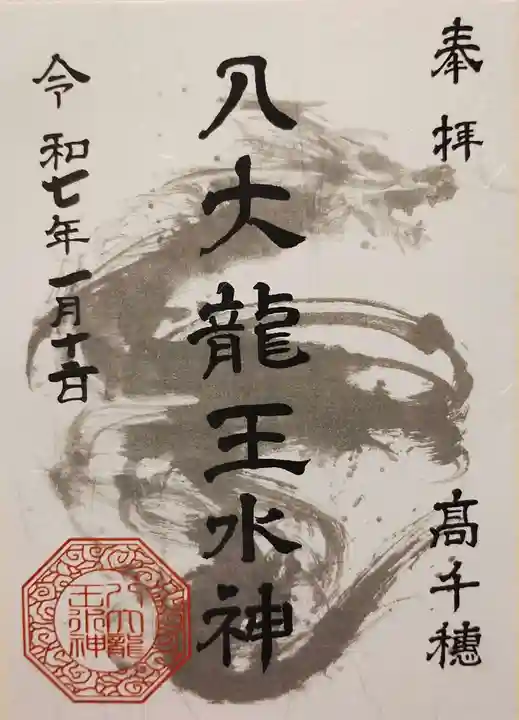 奉拝
髙千穗
八大龍王水神
令和七年一月十六日
八大龍
王水神